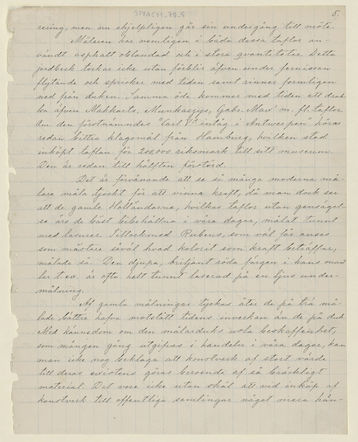 5.
resing, men om ohjelpligen går sin undergång till möte.
Målaren har nemligen i båda dessa taflor an-
vändt asphalt oblandad och i stora quantiteter. Detta
jordbeck torkar icke utan förblir äfven under fernissan
flytande och spricker med tiden samt rinner formligen
ned från duken. Samma öde kommer med tiden att drab-
ba äfven Makkarts, Munkacsys, Gabr. Max' m. fl. taflor.
Om den förstnämndes "Carl V:s intåg i Antwerpen" höras
redan bittra klagomål från Hamburg, hvilken stad
inköpt taflan för riksmark till sitt museum.
Den är redan till hälften förstörd.
Det är förvånande att se så många moderna må-
lare måla tjockt för att vinna kraft, då man dock ser
att de gamla Holländarna, hvilkas taflor utan gensägel-
se äro de bäst bibehållna i våra dagar, målat tunnt
med lasurer. Tillochmed Rubens, som väl får anses
som mästare såväl hvad kolorit som kraft beträffar,
målade så. Den djupa, briljant röda färgen i hans man-
lar t.ex. är ofta helt tunnt laserad på en ljus under-
målning.
At gamla målningar tyckas äfven de på trä må-
lade bättre hafva motstått tidens inverkan än de på duk.
Med kännedom om den målarduks usla beskaffenhet,
som mången gång utgifvas i handeln i våra dagar, kan
man icke nog beklaga att konstverk af stort värde
till deras existens göras beroende af så bräckligt
material. Det vore icke utan skäl att vid inköp af
konstverk till offentliga samlingar något mera hän-